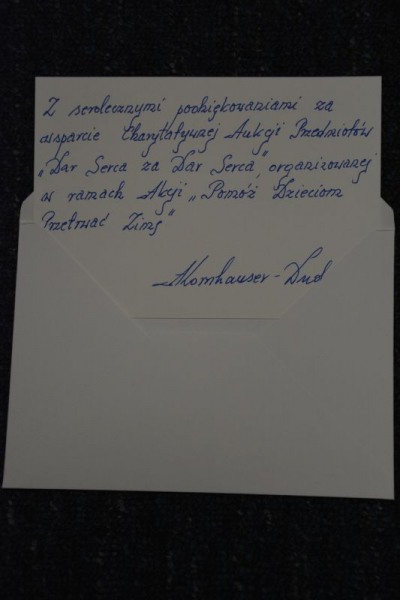 Z serdecznymi podziękowaniami za
wsparcie Charytatywnej Aukcji Przedmiotów
„Dar Serca za Dar Serca", organizowanej
w ramach Akcji „Pomóż Dzieciom
Przetrwać Zimę"
AKornhauser-Dud